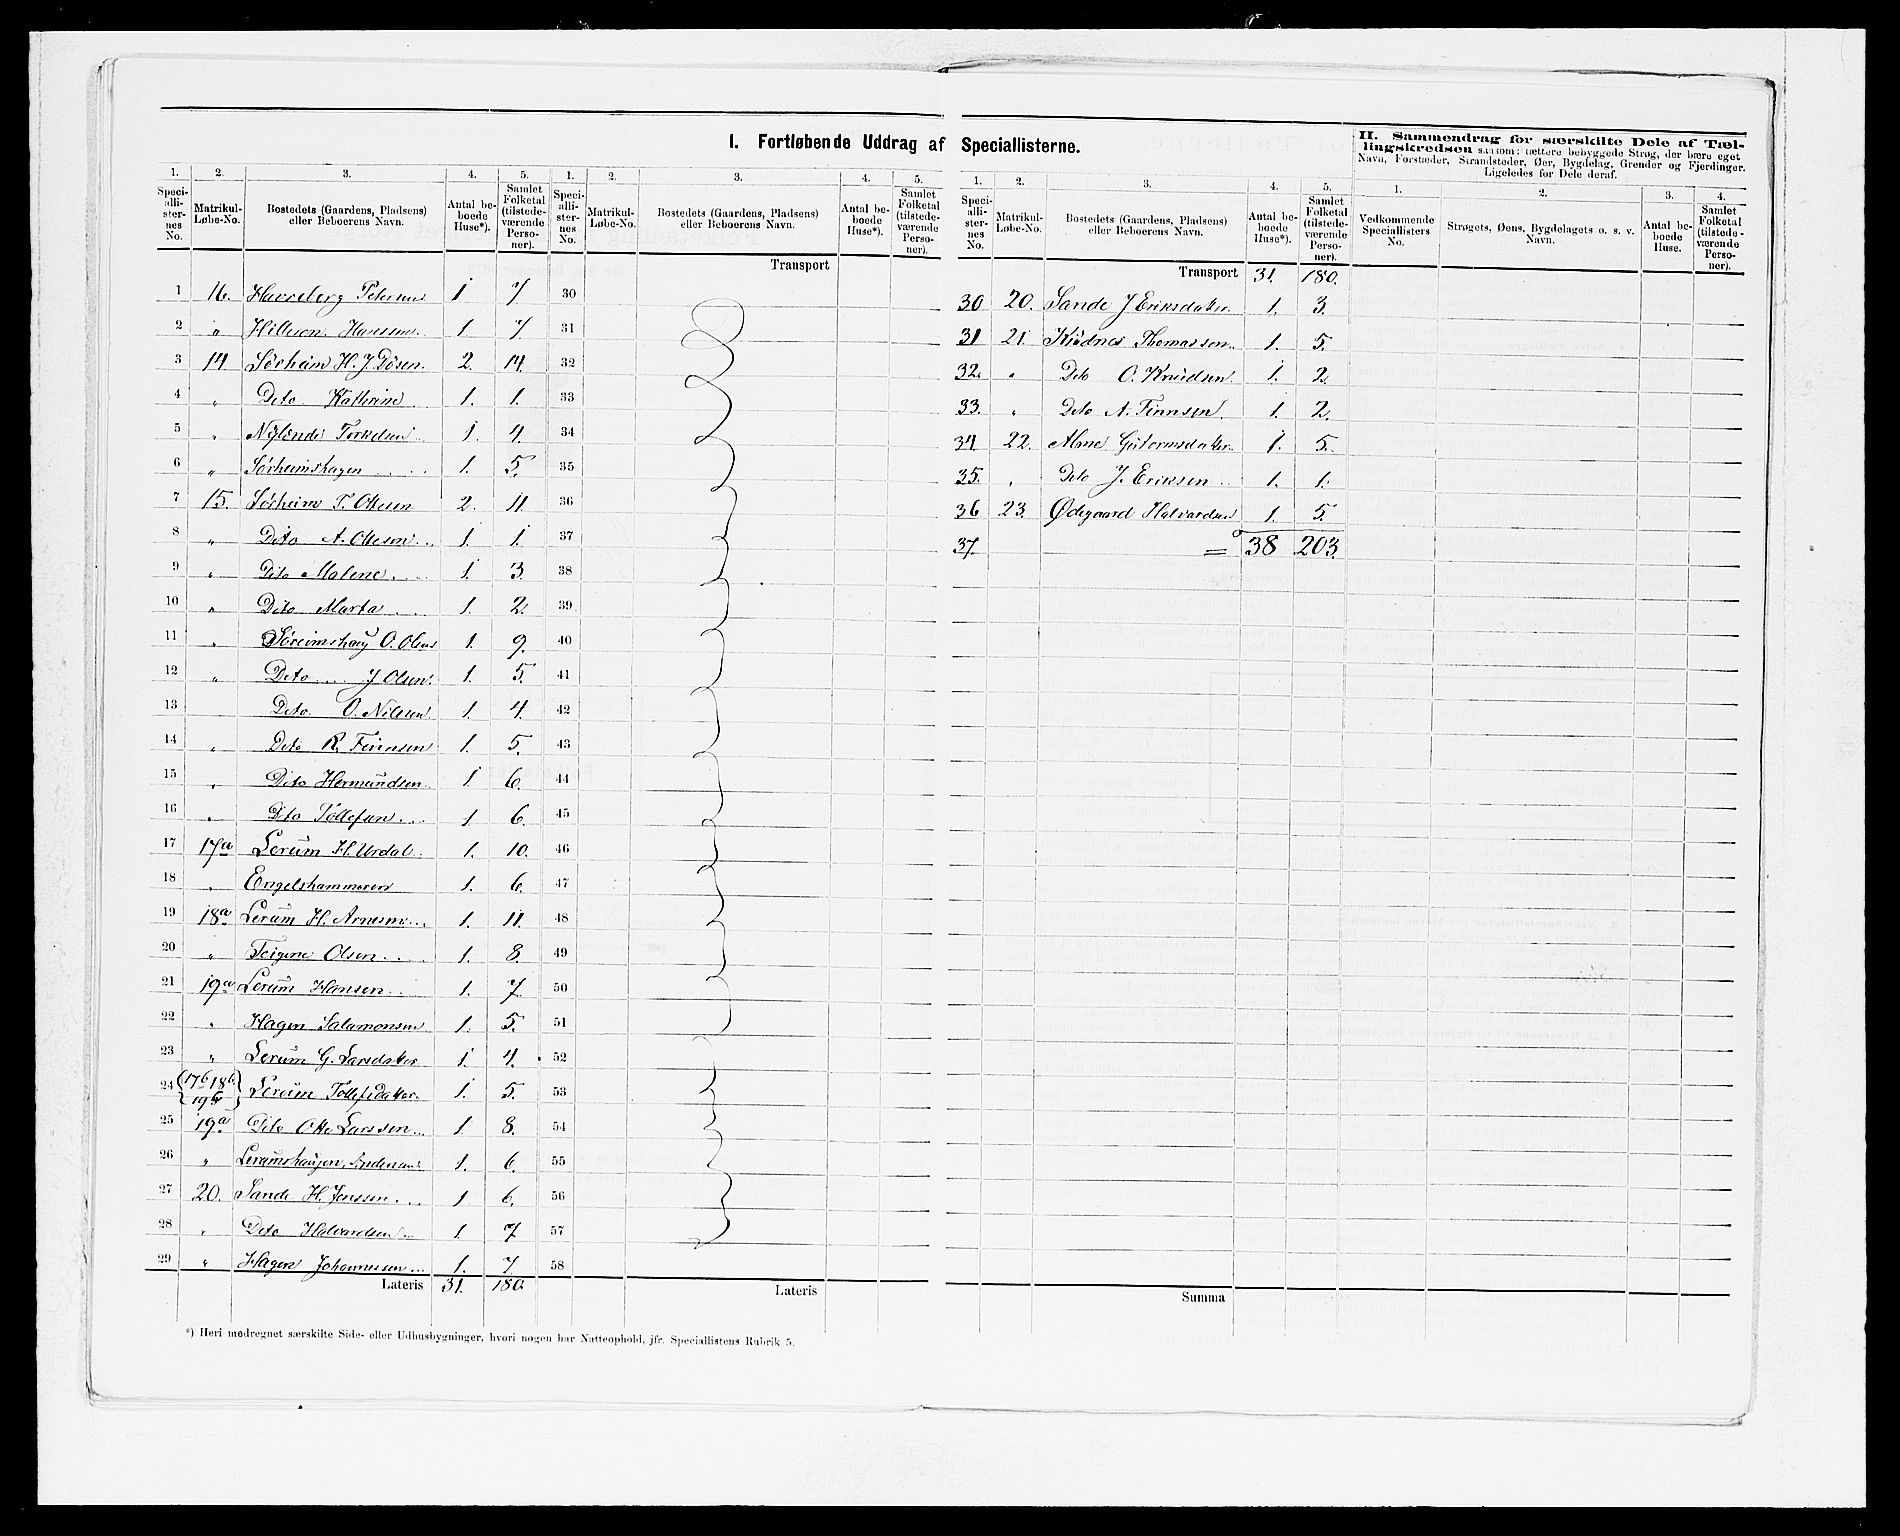 I. Fortløbende Uddrag af Speciallisterne.
II. Sammendrag for særskilte Dele af Tæl-
lingskredsen saasom: tættere bebyggede Strøg, der bære eget
Navn, Forstæder, Strandsteder, Øer, Bygdelag, Grender og Fjerdinger.
Ligeledes for Dele deraf.
1. 2. 3. 4. 5. 1. 2. 3. 4. 5. 1. 2. 3. 4. 5. 1. 2. 3. 4.
Speci-alli-ster-nes No. Matrikul-Løbe-No. Bostedets (Gaardens, Pladsens) eller Beboerens Navn. Antal be-boede Huse*). Samlet Folketal (tilstede-værende Perso-ner).
Speci-alli-ster-nes No. Matrikul-Løbe-No. Bostedets (Gaardens, Pladsens) eller Beboerens Navn. Antal be-boede Huse*). Samlet Folketal (tilstede-værende Perso-ner).
Speci-alli-ster-nes No. Matrikul-Løbe-No. Bostedets (Gaardens, Pladsens) eller Beboerens Navn. Antal be-boede Huse*). Samlet Folketal (tilstede-værende Perso-ner).
Vedkommende Speciallisters No. Strøgets, Øens, Bygdelagets o. s. v. Navn. Antal be-boede Huse. Samlet Folketal (tilstede-værende Perso-ner).
Transport
1 16. Petersen 1 7 30
2 " Hilleren Hansson 1. 7. 31
3 14. Sørheim H. J. Dösen. 2. 14. 32
4 " Dito Katherine 1. 1. 33
5 " Nÿlende Torkelsen 1. 4. 34
6 " Sørheimshagen 1. 5. 35
7 15. Sørheim T. Ottesen 2. 11. 36
8 " Dito A. Ottesen 1. 1. 37
9 " Dito Malene 1. 3. 38
10 " Dito Marta 1. 2. 39
11 " Søreimshaug O. Olsen 1. 9. 40
12 " Dito J Olsen. 1. 5. 41
13 Dito. O. Nilsen. 1. 4. 42
14 " Dito R. Finnsen 1. 5. 43
15 " Dito Hermundsen 1. 6. 44
16 " Dito Tollefsen 1. 6. 45
17 17a Lerum H. Urdal 1. 10. 46
18 " Engelshammeren 1. 6. 47
19 18a Lerum H. Arnesen 1. 11. 48
20 " Teigene Olsen 1. 8. 49
21 19a Lerum Hansen 1. 7. 50
22 " Hagen Salamonsen 1. 5. 51
23 " Lerum G. Larsdatter 1. 4. 52
24 {17b 18b 19b} Lerum Tollefsdatter 1. 5. 53
25 19a Dito Otto Larssen 1. 8. 54
26 " Lerumshaugen, Andersen 1. 6. 55
27 20. Sande H. Jenssen 1 6. 56
28 " Dito Halvardsen 1. 7 57
29 " Hagen Johannessen 1. 7. 58
Lateris 31. 180.
Lateris
Transport 31. 180.
30 20. Sande J Eriksdatter 1. 3.
31 21. Kjødnes Thomassen 1. 5.
32. " Dito O. Knudsen 1. 2.
33. " Dito A. Finnsen 1. 2.
34. 22. Alme Gutormsdatter 1. 5.
35. " Dito J. Eriksen 1. 1.
36 23. Ødegaard Halvardsen 1. 5.
37. = 38 203.
Summa
*) Heri medregnet særskilte Side- eller Udhusbygninger, hvori nogen har Natteophold, jfr. Speciallistens Rubrik 5.